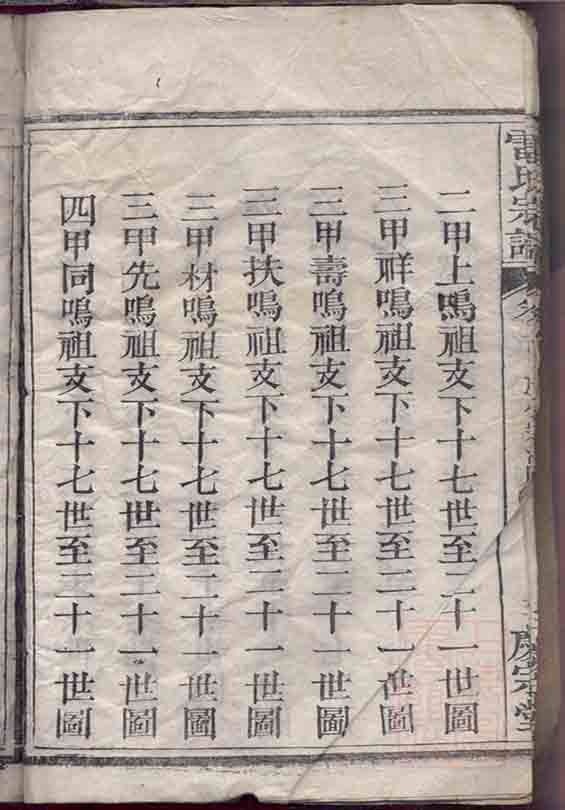 二甲上鳴祖支下十七世至二十一世圖
三甲祥鳴祖支下十七世至二十一世圖
三甲壽鳴祖支下十七世至二十一世圖
三甲扶鳴祖支下十七世至二十一世圖
三甲材鳴祖支下十七世至二十一世圖
三甲先鳴祖支下十七世至二十一世圖
四甲同鳴祖支下十七世至二十一世圖
雷氏宗譜
宗堂